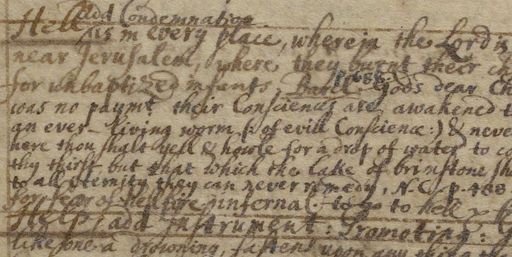 Hell add Condemnation
is in every place, wherein the Lord is
near Jerusalem, where they burnt their ch
for unbaptized infants, Gods dear Ch
was no paymt their Consciences are awakened t
an ever-living worm (: of evill Conscience:) & neve
here thou shalt yell & howle for a drop of water to co
thy thirst but that which the lake of brimstone sh
to all eternity they can never remedy, N.C. p. 488
for fear of hell fire infernal. to go to hell
Help: add Instrument: Promoting: G
like one a drowning, fastens upon any thing th